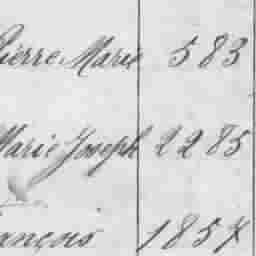 Pierre Marie 583
Marie Joseph 2285
ançois 1857